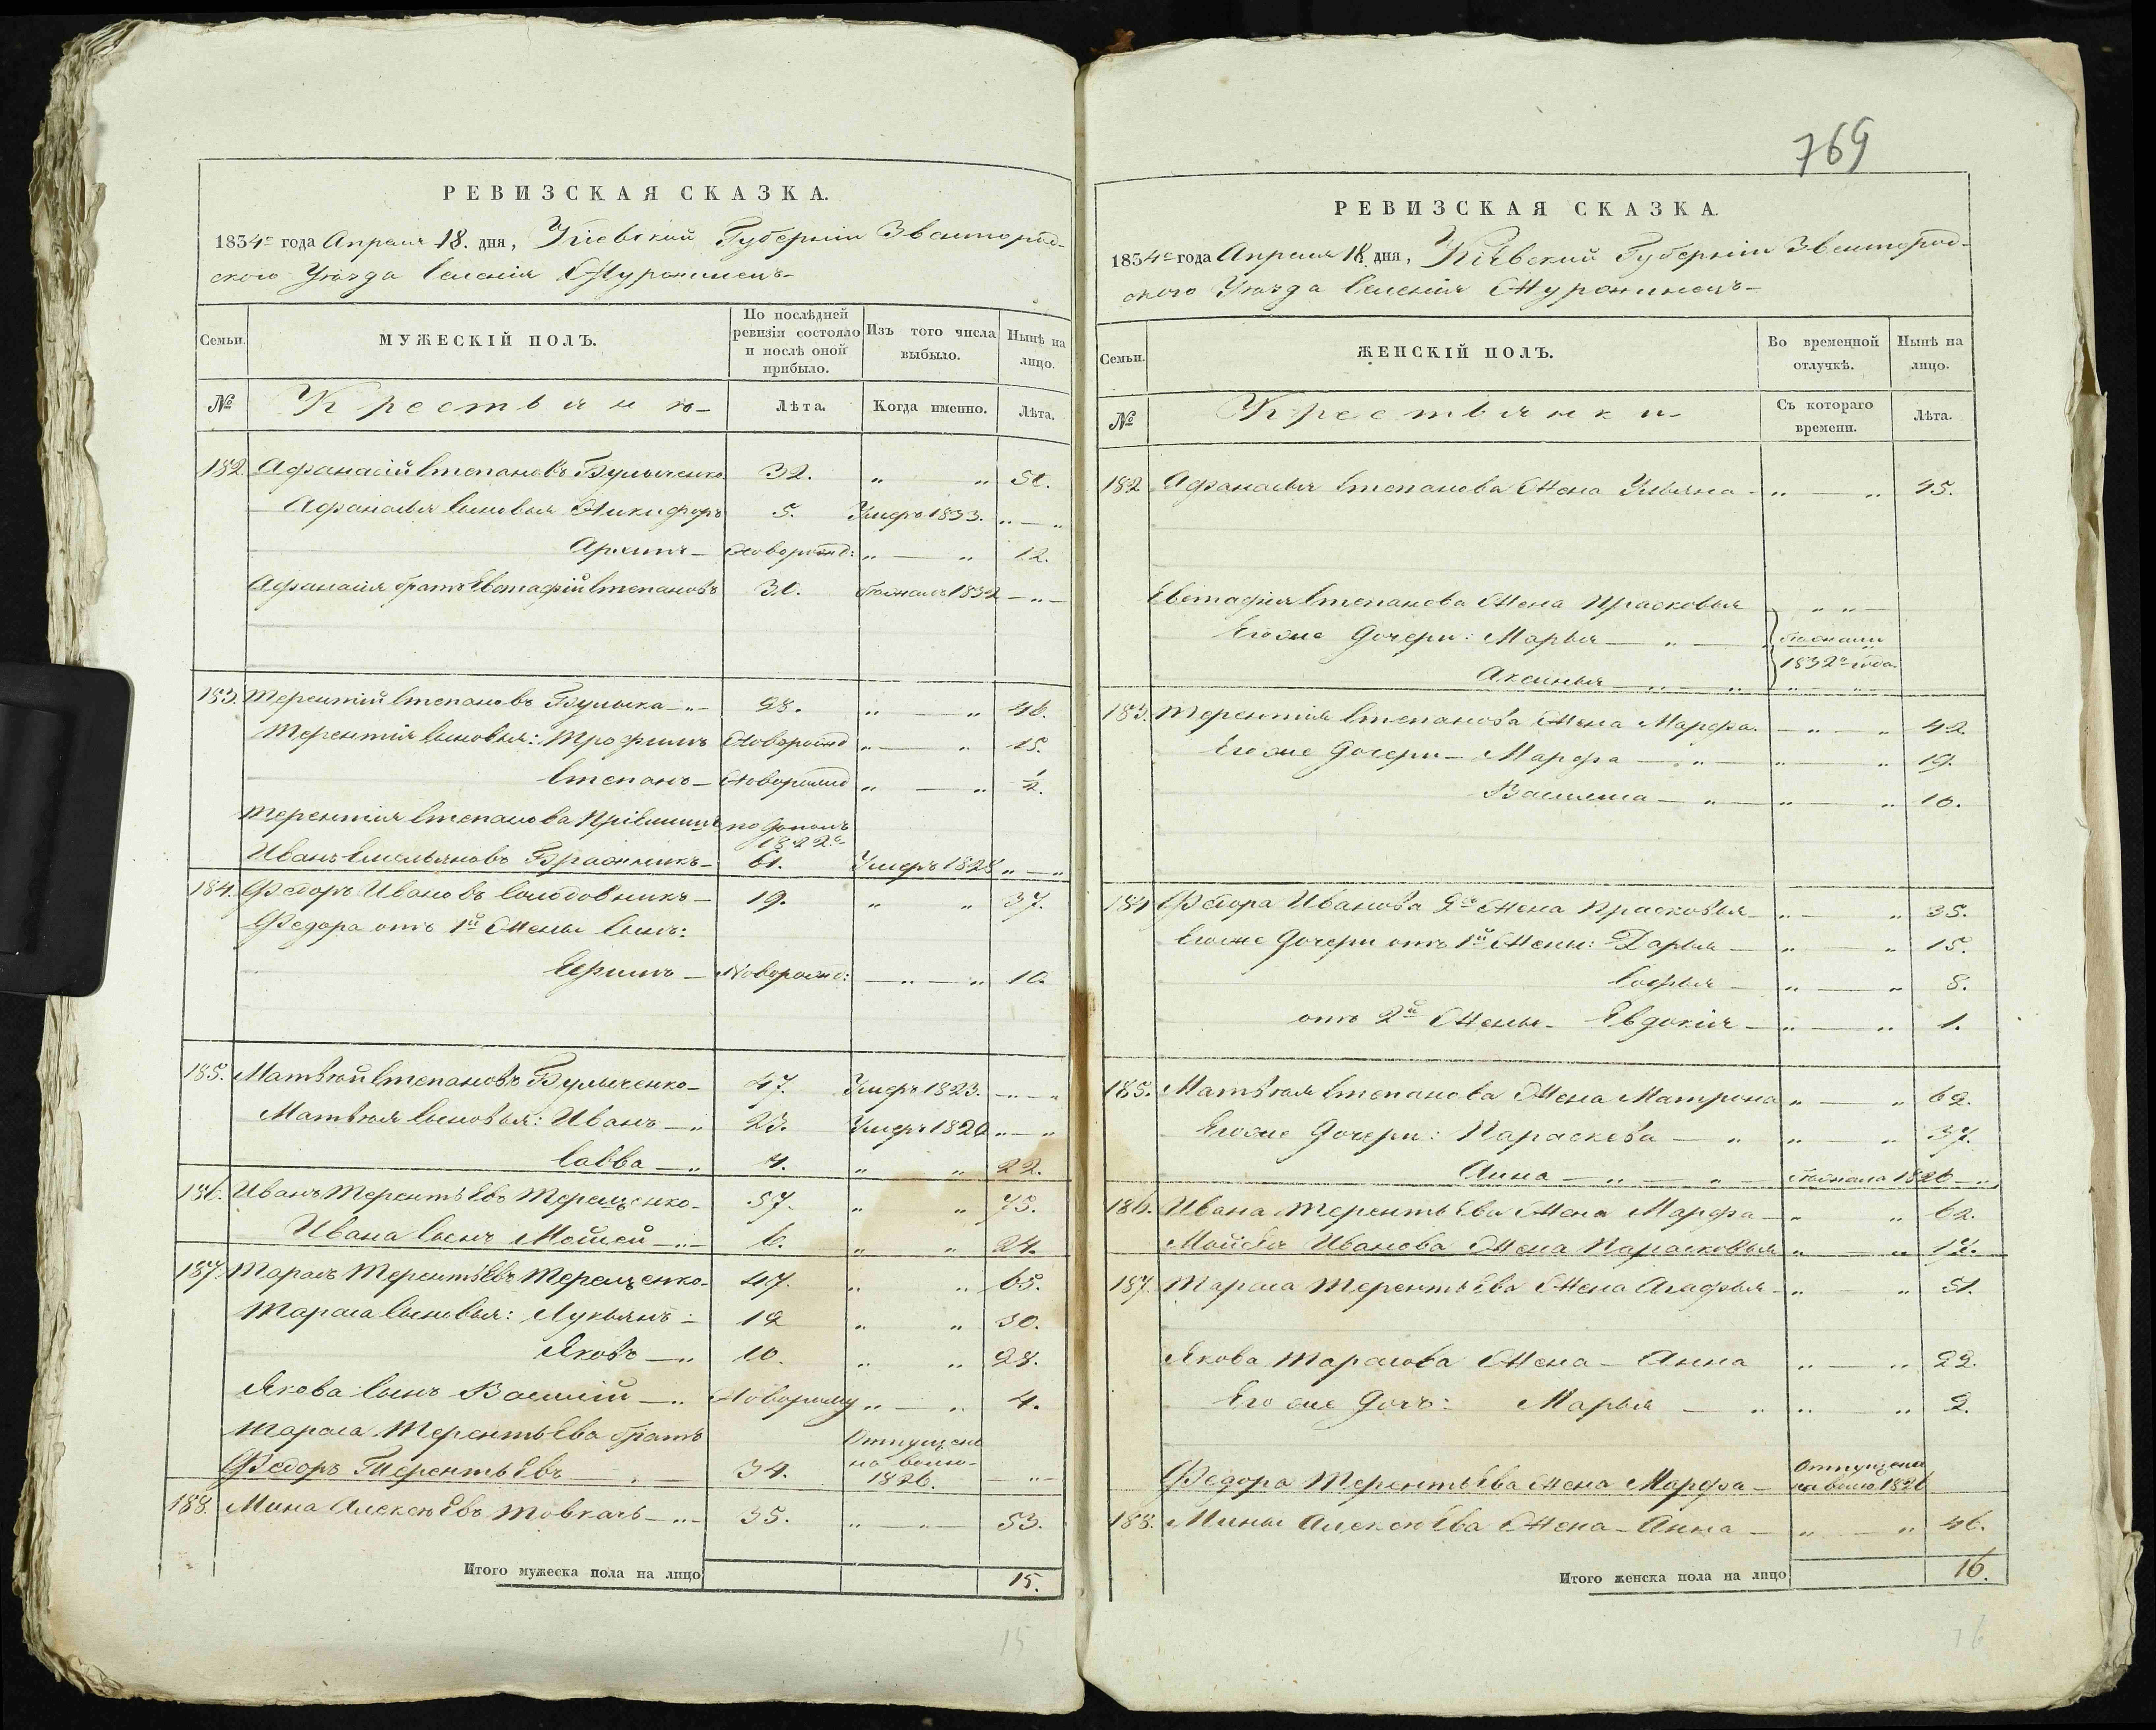 769
РЕВИЗСКАЯ СКАЗКА.
1834го года Апреля 18. дня, Кіевской Губерніи Звенигород-
ского Уѣзда Селенія Журжинецъ
Семьи.
МУЖЕСКІЙ ПОЛЪ.
По послѣдней ревизіи состояло и послѣ оной прибыло.
Изъ того числа выбыло.
Нынѣ на лицо.
№
Крестьянъ
Лѣта.
Когда именно.
Лѣта.
182. Афанасій Степановъ Булыченко 32. „ „ 50.
Афанасія сыновья Никифоръ 5. Умеръ 1833. „ — „
Архипъ — Новорожд: „ — „ 12.
Афанасія братъ Евстафій Степановъ 30. 1832 — „ —
183. Терентій Степановъ Булыка — „ — 28. „ — „ 46.
Терентія сыновья: Трофимъ Новорожд „ — „ 15.
Степанъ — Новорожд „ — „ ½.
Терентія Степанова
1822го
Иванъ Емельяновъ 61. Умеръ 1828 „ — „
184. Федоръ Ивановъ Солодовникъ — 19. „ „ 37.
Федора отъ 1й Жены Сынъ:
Ефимъ — Новорожд: — „ — „ 10.
185. Матвѣй Степановъ Булыченко — 47. Умеръ 1823. — „ — „
Матвѣя сыновья: Иванъ — „ 23. Умеръ 1820 „ — „
Савва — „ 4. „ „ 22.
186. Иванъ Терентьевъ Терещенко — 57. „ „ 75.
Ивана сынъ Мойсей — „ — 6. „ „ 24.
187. Тарасъ Терентьевъ Терещенко — 47. „ „ 65.
Тараса сыновья: Лукьянъ — 12 „ „ 30.
Яковъ — „ 10. „ „ 28.
Якова сынъ Василій — „ Новорожд „ — „ 4.
Тараса Терентьева братъ
Федоръ Терентьевъ — 34. Отпущенъ на волю 1826. — „ —
188. Мина Алексѣевъ Товкачь — „ — 35. „ — „ — 53.
Итого мужеска пола на лицо 15.
15
РЕВИЗСКАЯ СКАЗКА.
1834го года Апреля 18 дня, Кіевской Губерніи Звенигород-
ского Уѣзда Селенія Журжинецъ
Семьи.
ЖЕНСКІЙ ПОЛЪ.
Во временной отлучкѣ.
Нынѣ на лицо.
№
Крестьянки
Съ котораго времени.
Лѣта.
182 Афанасія Степанова Жена Ульяна — „ — „ 45.
Евстафія Степанова Жена Прасковья „ „ —
Его же Дочери: Марья — „ —
1832го года
Аксинья — „ — „ „ — „
183. Терентія Степанова Жена Марфа. — „ — „ 42.
Его же Дочери — Марфа — „ — „ „ 19.
Василиса — „ — „ „ 10.
184 Федора Иванова 2я Жена Прасковья — „ — „ 35.
Его же Дочери отъ 1й Жены: Дарья — „ — „ 15.
Софья — „ — „ 8.
отъ 2й Жены — Евдокія — „ — „ 1.
185. Матвѣя Степанова Жена Матрона „ — „ 62.
Его же Дочери: Параскева — „ „ — „ 37.
Анна — „ — „ — 1826 — „
186. Ивана Терентьева Жена Марфа — „ „ 62.
Мойсея Иванова Жена Парасковья „ — „ 17.
187. Тараса Терентьева Жена Агафья — „ — „ 51.
Якова Тарасова Жена — Анна „ — „ 22.
Его же Дочь: Марья — „ „ — „ 2.
Федора Терентьева Жена Марфа — Отпущена на волю 1826
188. Мины Алексѣева Жена — Анна — „ — „ 46.
Итого женска пола на лицо 16.
16